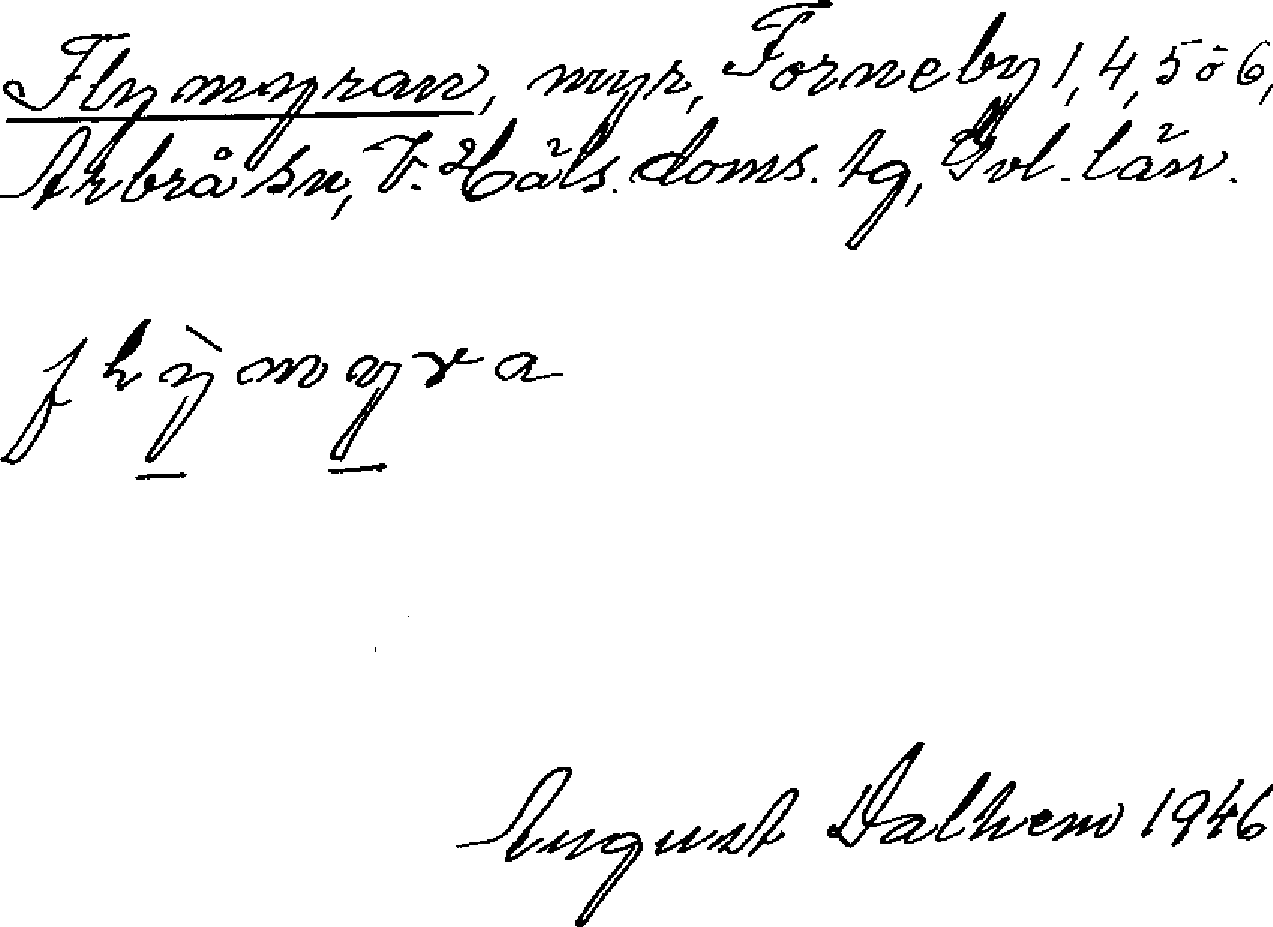 Flymyran, myr, Forneby 1, 4, 5 o 6,
Arbrå sn, V. Häls. doms. tg, Gvl. län.
flỳmyra
August Dalhem 1946